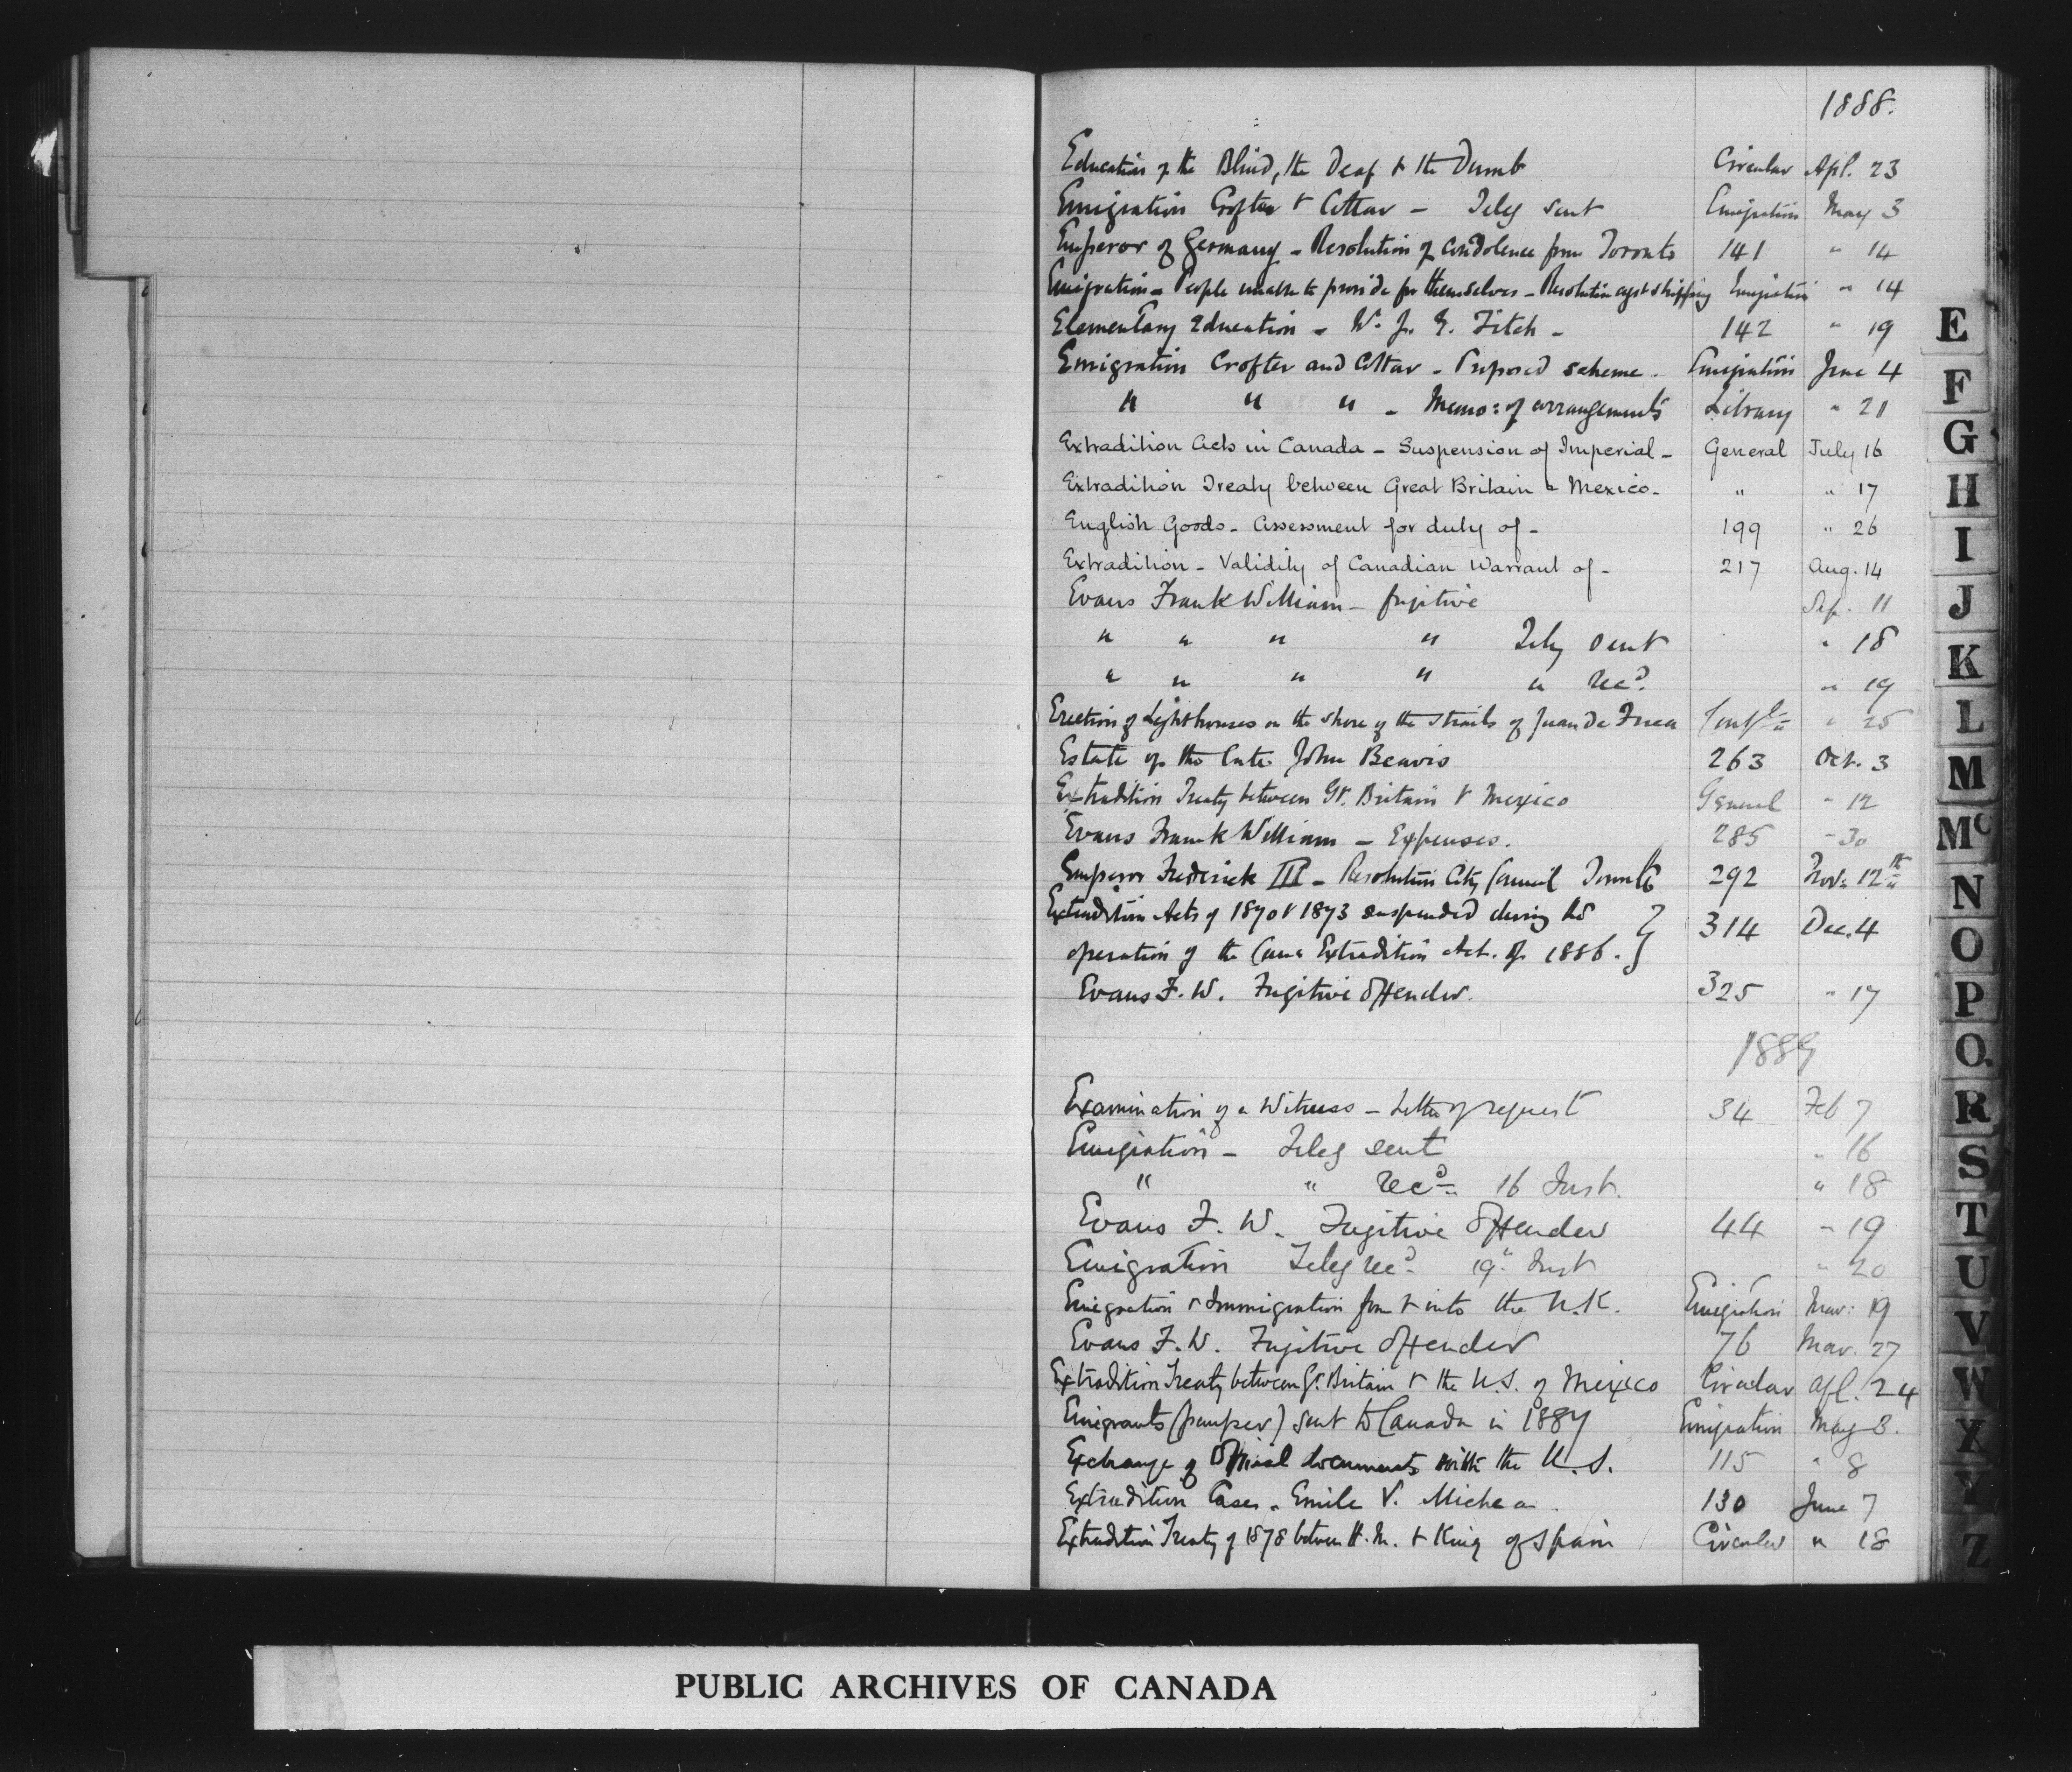 1888.
Education of the Blind, the Deaf & the Dumb Circular Apl. 23
Emigration Crofter & Cottar - Teleg sent Emigration May 3
Emperor of Germany - Resolution of condolence from Toronto 141 " 14
Emigration - People unable to provide for themselves - Resolution agst shipping Emigration " 14
Elementary Education - W. J. G. Fitch - 142 " 19
Emigration Crofter and Cottar - Proposed scheme - Emigration June 4
" " " - Memo: of arrangements Library " 21
Extradition Acts in Canada - Suspension of Imperial - General July 16
Extradition Treaty between Great Britain & Mexico - " " 17
English Goods - Assessment for duty of - 199 " 26
Extradition - Validity of Canadian Warrant of - 217 Aug. 14
Evans Frank William - fugitive Sep. 11
" " " " Teleg sent " 18
" " " " " Recd. " 19
Erection of Lighthouses on the shore of the straits of Juan de Fuca Confl " 25
Estate of the late John Beavis 263 Oct. 3
Extradition Treaty between Gt. Britain & Mexico General " 12
Evans Frank William - Expenses. 285 " 30
Emperor Frederick III - Resolution City Council Toronto 292 Nov. 12th
Extradition Acts of 1870 & 1873 suspended during the
operation of the Cana Extradition Act. of 1886. } 314 Dec. 4
Evans F. W. Fugitive Offender. 325 " 17
1889
Examination of a Witness - Letter of request 34 Feb 7
Emigration - Teleg sent " 16
" " Recd 16 Inst. " 18
Evans F. W. Fugitive Offender 44 " 19
Emigration Teleg recd. 19 Inst " 20
Emigration & Immigration from & into the U.K. Emigration Mar: 19
Evans F. W. Fugitive Offender 76 Mar. 27
Extradition Treaty between Gt. Britain & the U.S. of Mexico Circular Apl. 24
Emigrants (pauper) sent to Canada in 1887 Emigration May 3.
Exchange of Official documents with the U.S. 115 " 8
Extradition Case - Emile V. 130 June 7
Extradition Treaty of 1878 between H.M. & King of Spain Circular " 18
E
F
G
H
I
J
K
L
M
Mc
N
O
P
Q.
R
S
T
U
V
W
X
Y
Z
PUBLIC ARCHIVES OF CANADA